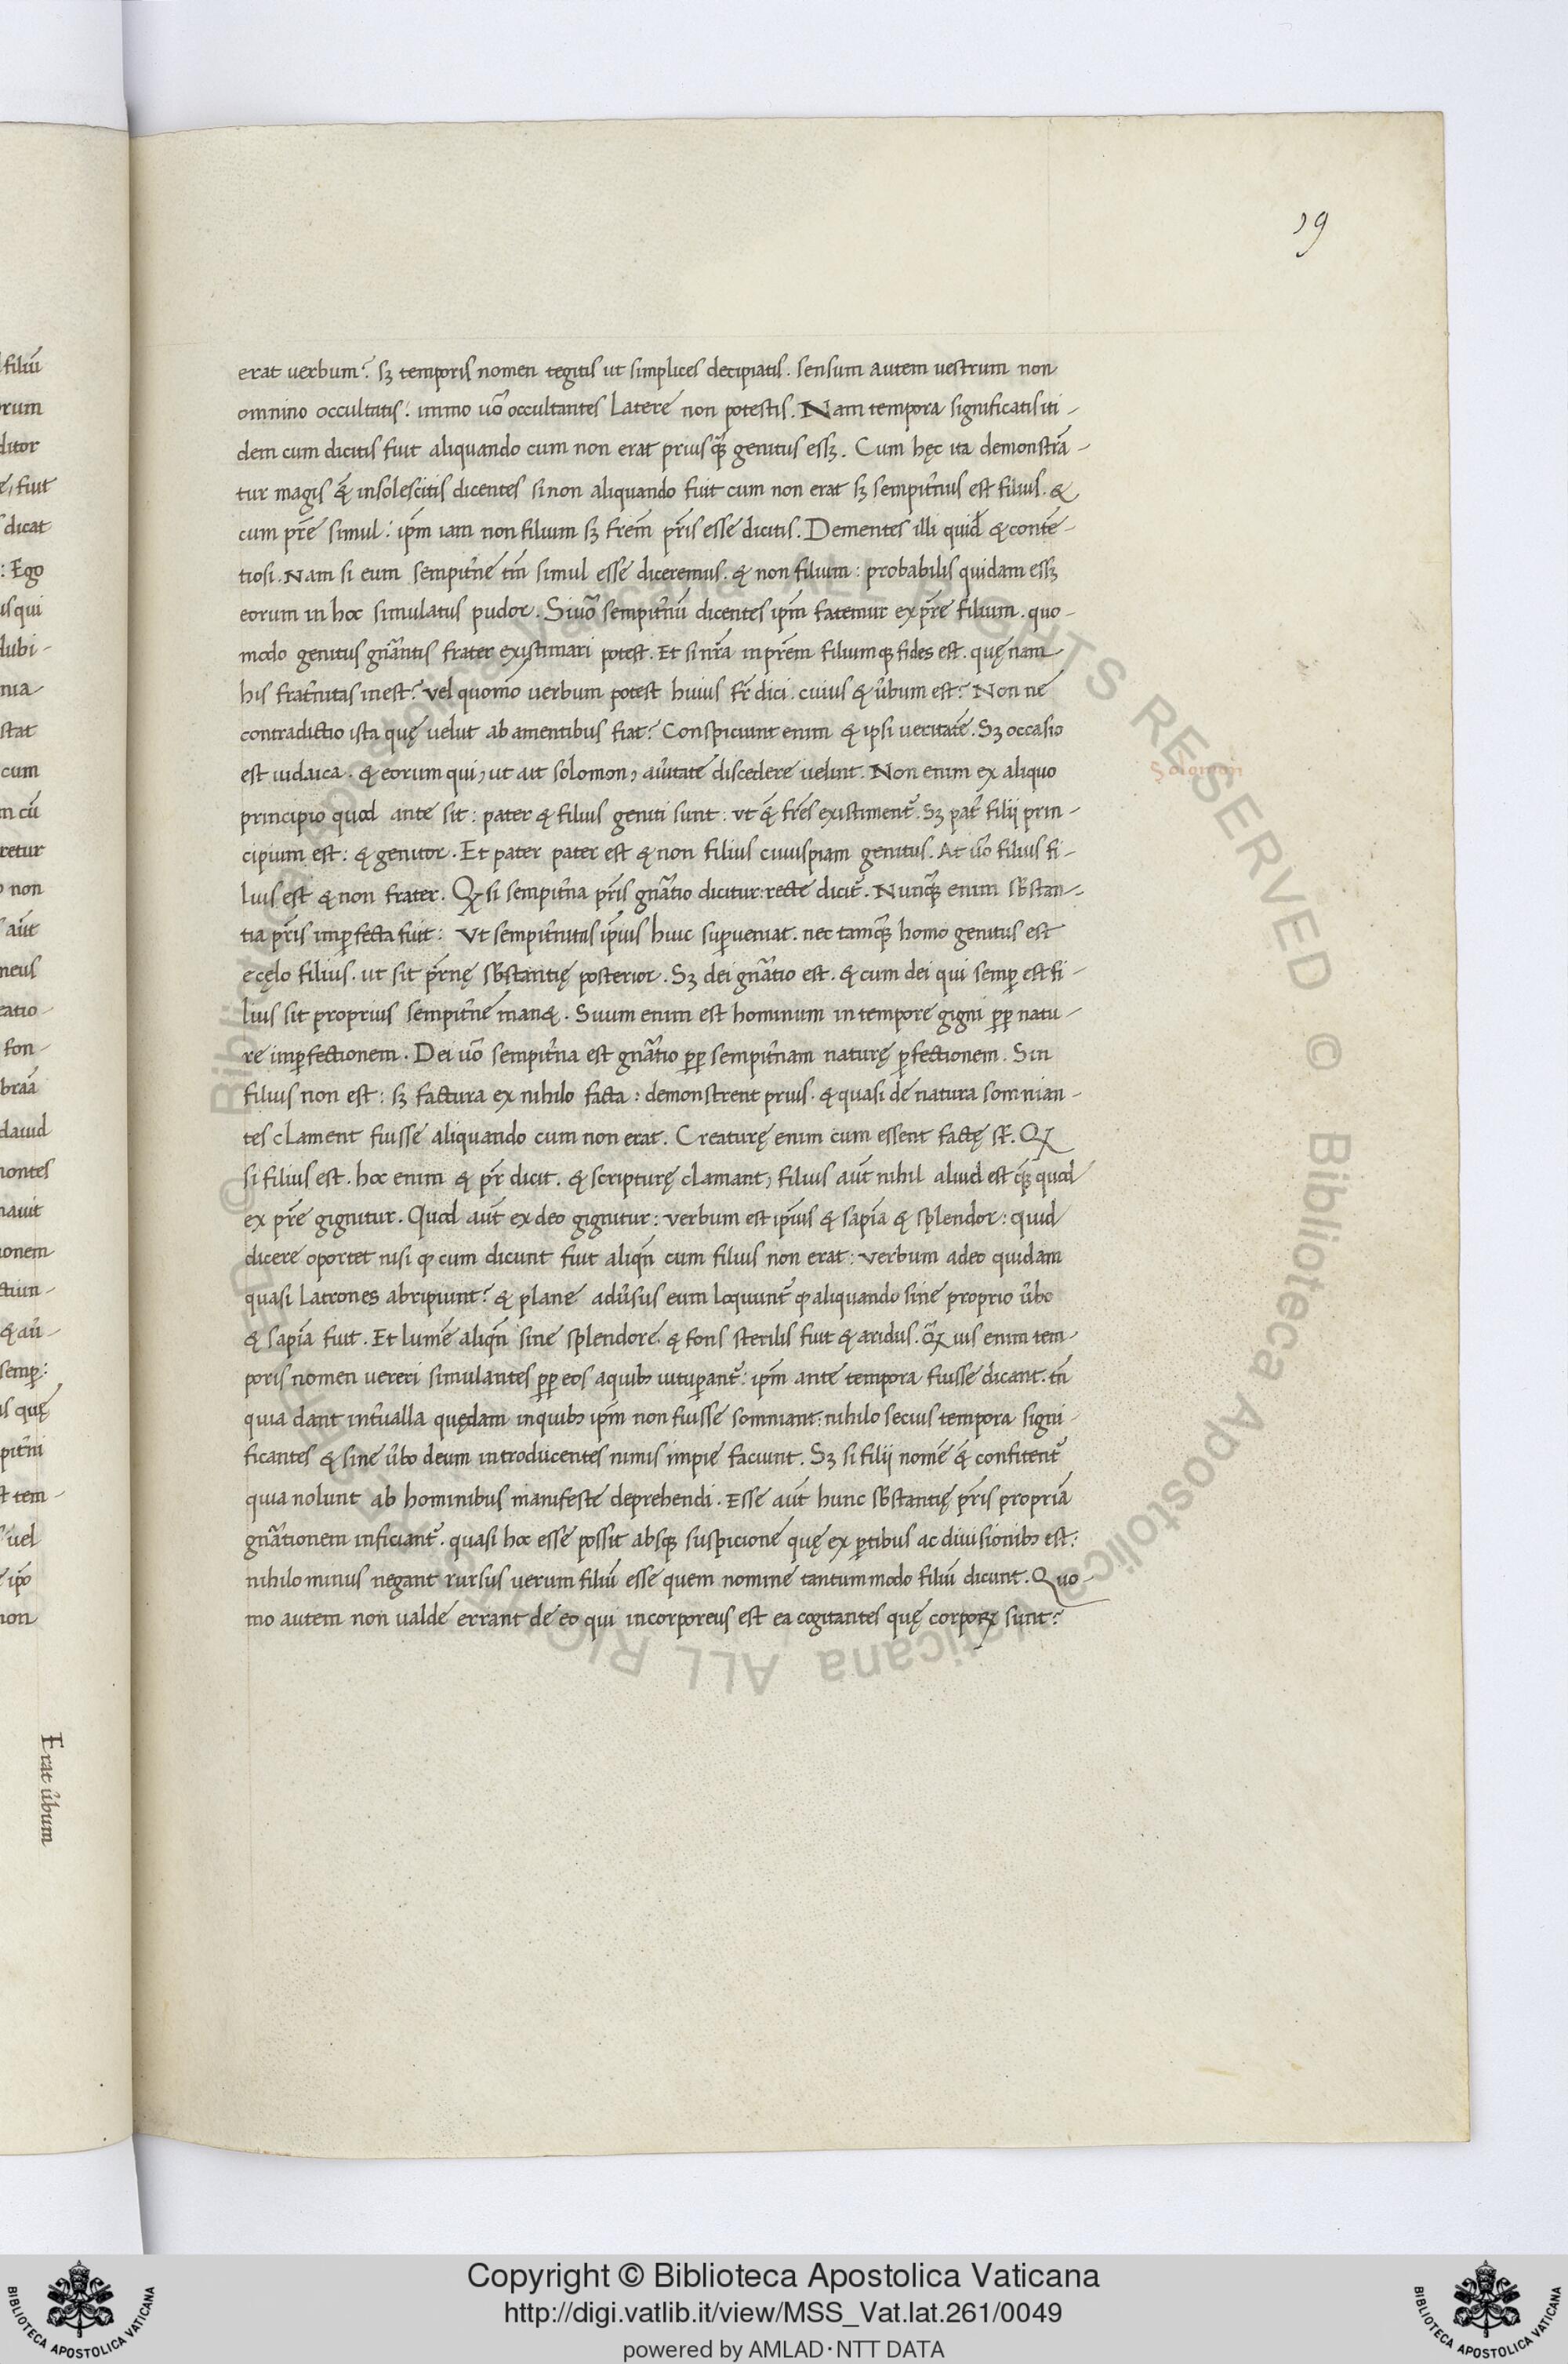 19
erat uerbum? sꝫ temporis nomen tegitis ut simplices decipiatis. sensum autem uestrum non
omnino occultatis: immo uo᷑ occultantes Latere non potestis. Nam tempora significatis iti-
dem cum dicitis fuit aliquando cum non erat priusq̃ꝫ genitus essꝫ. Cum hęc ita demonstrā-
tur magis q̃ insolescitis dicentes si non aliquando fuit cum non erat sꝫ sempit᷑nus est filius. &
cum pr̃e simul: ip̃m iam non filium sꝫ fr̃em pr̃is esse dicitis. Dementes illi quid & contē-
tiosi. Nam si eum sempit᷑ne tm̃ simul esse diceremus. & non filium: probabilis quidam essꝫ
eorum in hoc simulatus pudor. Si uo᷑ sempit᷑nū dicentes ip̃m fatemur ex pr̃e filium. quo-
modo genitus gn̄antis frater existimari potest. Et si nr̃a in pr̃em filiumqꝫ fides est. quęnam
his frat᷑nitas inest? vel quomō uerbum potest huius fr̃ dici. cuius & u᷑bum est? Non ne
contradictio ista quę uelut ab amentibus fiat? Conspiciunt enim & ipsi ueritatē. Sꝫ occasio
est iudaica. & eorum qui, ut ait solomon, a u᷑itate discedere uelint. Non enim ex aliquo
Solomon
principio quod ante sit: pater & filius geniti sunt: vt & fr̃es existiment᷑. Sꝫ pat᷑ filii prin-
cipium est: & genitor. Et pater pater est & non filius cuiuspiam genitus. At uo᷑ filius fi-
lius est & non frater. Qꝫ si sempit᷑na pr̃is gn̄atio dicitur: recte dicit᷑. Nunq̃ꝫ enim sb̃stan-
tia pr̃is imꝑfecta fuit: Vt sempit᷑nitas ip̃ius huic suꝑueniat. nec tamq̃ꝫ homo genitus est
e cęlo filius. ut sit pr̃nę sb̃stantię posterior. Sꝫ dei gn̄atio est. & cum dei qui semꝑ est fi-
lius sit proprius sempit᷑ne man&. Suum enim est hominum in tempore gigni ꝓꝑ natu-
re imꝑfectionem. Dei uo᷑ sempit᷑na est gn̄atio ꝓꝑ sempit᷑nam naturę ꝑfectionem. Sin
filius non est: sꝫ factura ex nihilo facta: demonstrent prius. & quasi de natura somnian-
tes cLament fuisse aliquando cum non erat. Creaturę enim cum essent factę st̃. Qꝫ
si filius est. hoc enim & pr̃ dicit. & scripturę cLamant, filius aut̃ nihil aliud est q̃ꝫ quod
ex pr̃e gignitur. Quod aut̃ ex deo gignitur: verbum est ip̃ius & sapīa & splendor: quid
dicere oportet nisi ꝙ cum dicunt fuit aliqñ cum filius non erat: verbum a deo quidam
quasi Latrones abripiunt? & plane adu᷑sus eum Loquunt᷑ ꝙ aliquando sine proprio u᷑bo
& sapīa fuit. Et lumē aliqñ sine splendore. & fons sterilis fuit & aridus. Qꝫ uis enim tem-
poris nomen uereri simulantes ꝓꝑ eos a quibꝫ uituꝑant᷑: ip̃m ante tempora fuisse dicant. tñ
quia dant int᷑ualla quędam in quibꝫ ip̃m non fuisse somniant: nihilo secius tempora signi-
ficantes & sine u᷑bo deum introducentes nimis impie faciunt. Sꝫ si filii nomē & confitent᷑
quia nolunt ab hominibus manifeste deprehendi. Esse aut̃ hunc sb̃stantię pr̃is propriā
gn̄ationem inficiant᷑. quasi hoc esse possit absqꝫ suspicione quę ex ꝑtibus ac diuisionibꝫ est:
nihilo minus negant rursus uerum filiū esse quem nomine tantummodo filiū dicunt. Quo-
mo autem non ualde errant de eo qui incorporeus est ea cogitantes quę corpoꝝ sunt?
Erat u᷑bum
Copyright © Biblioteca Apostolica Vaticana
http://digi.vatlib.it/view/MSS_Vat.lat.261/0049
powered by AMLAD·NTT DATA